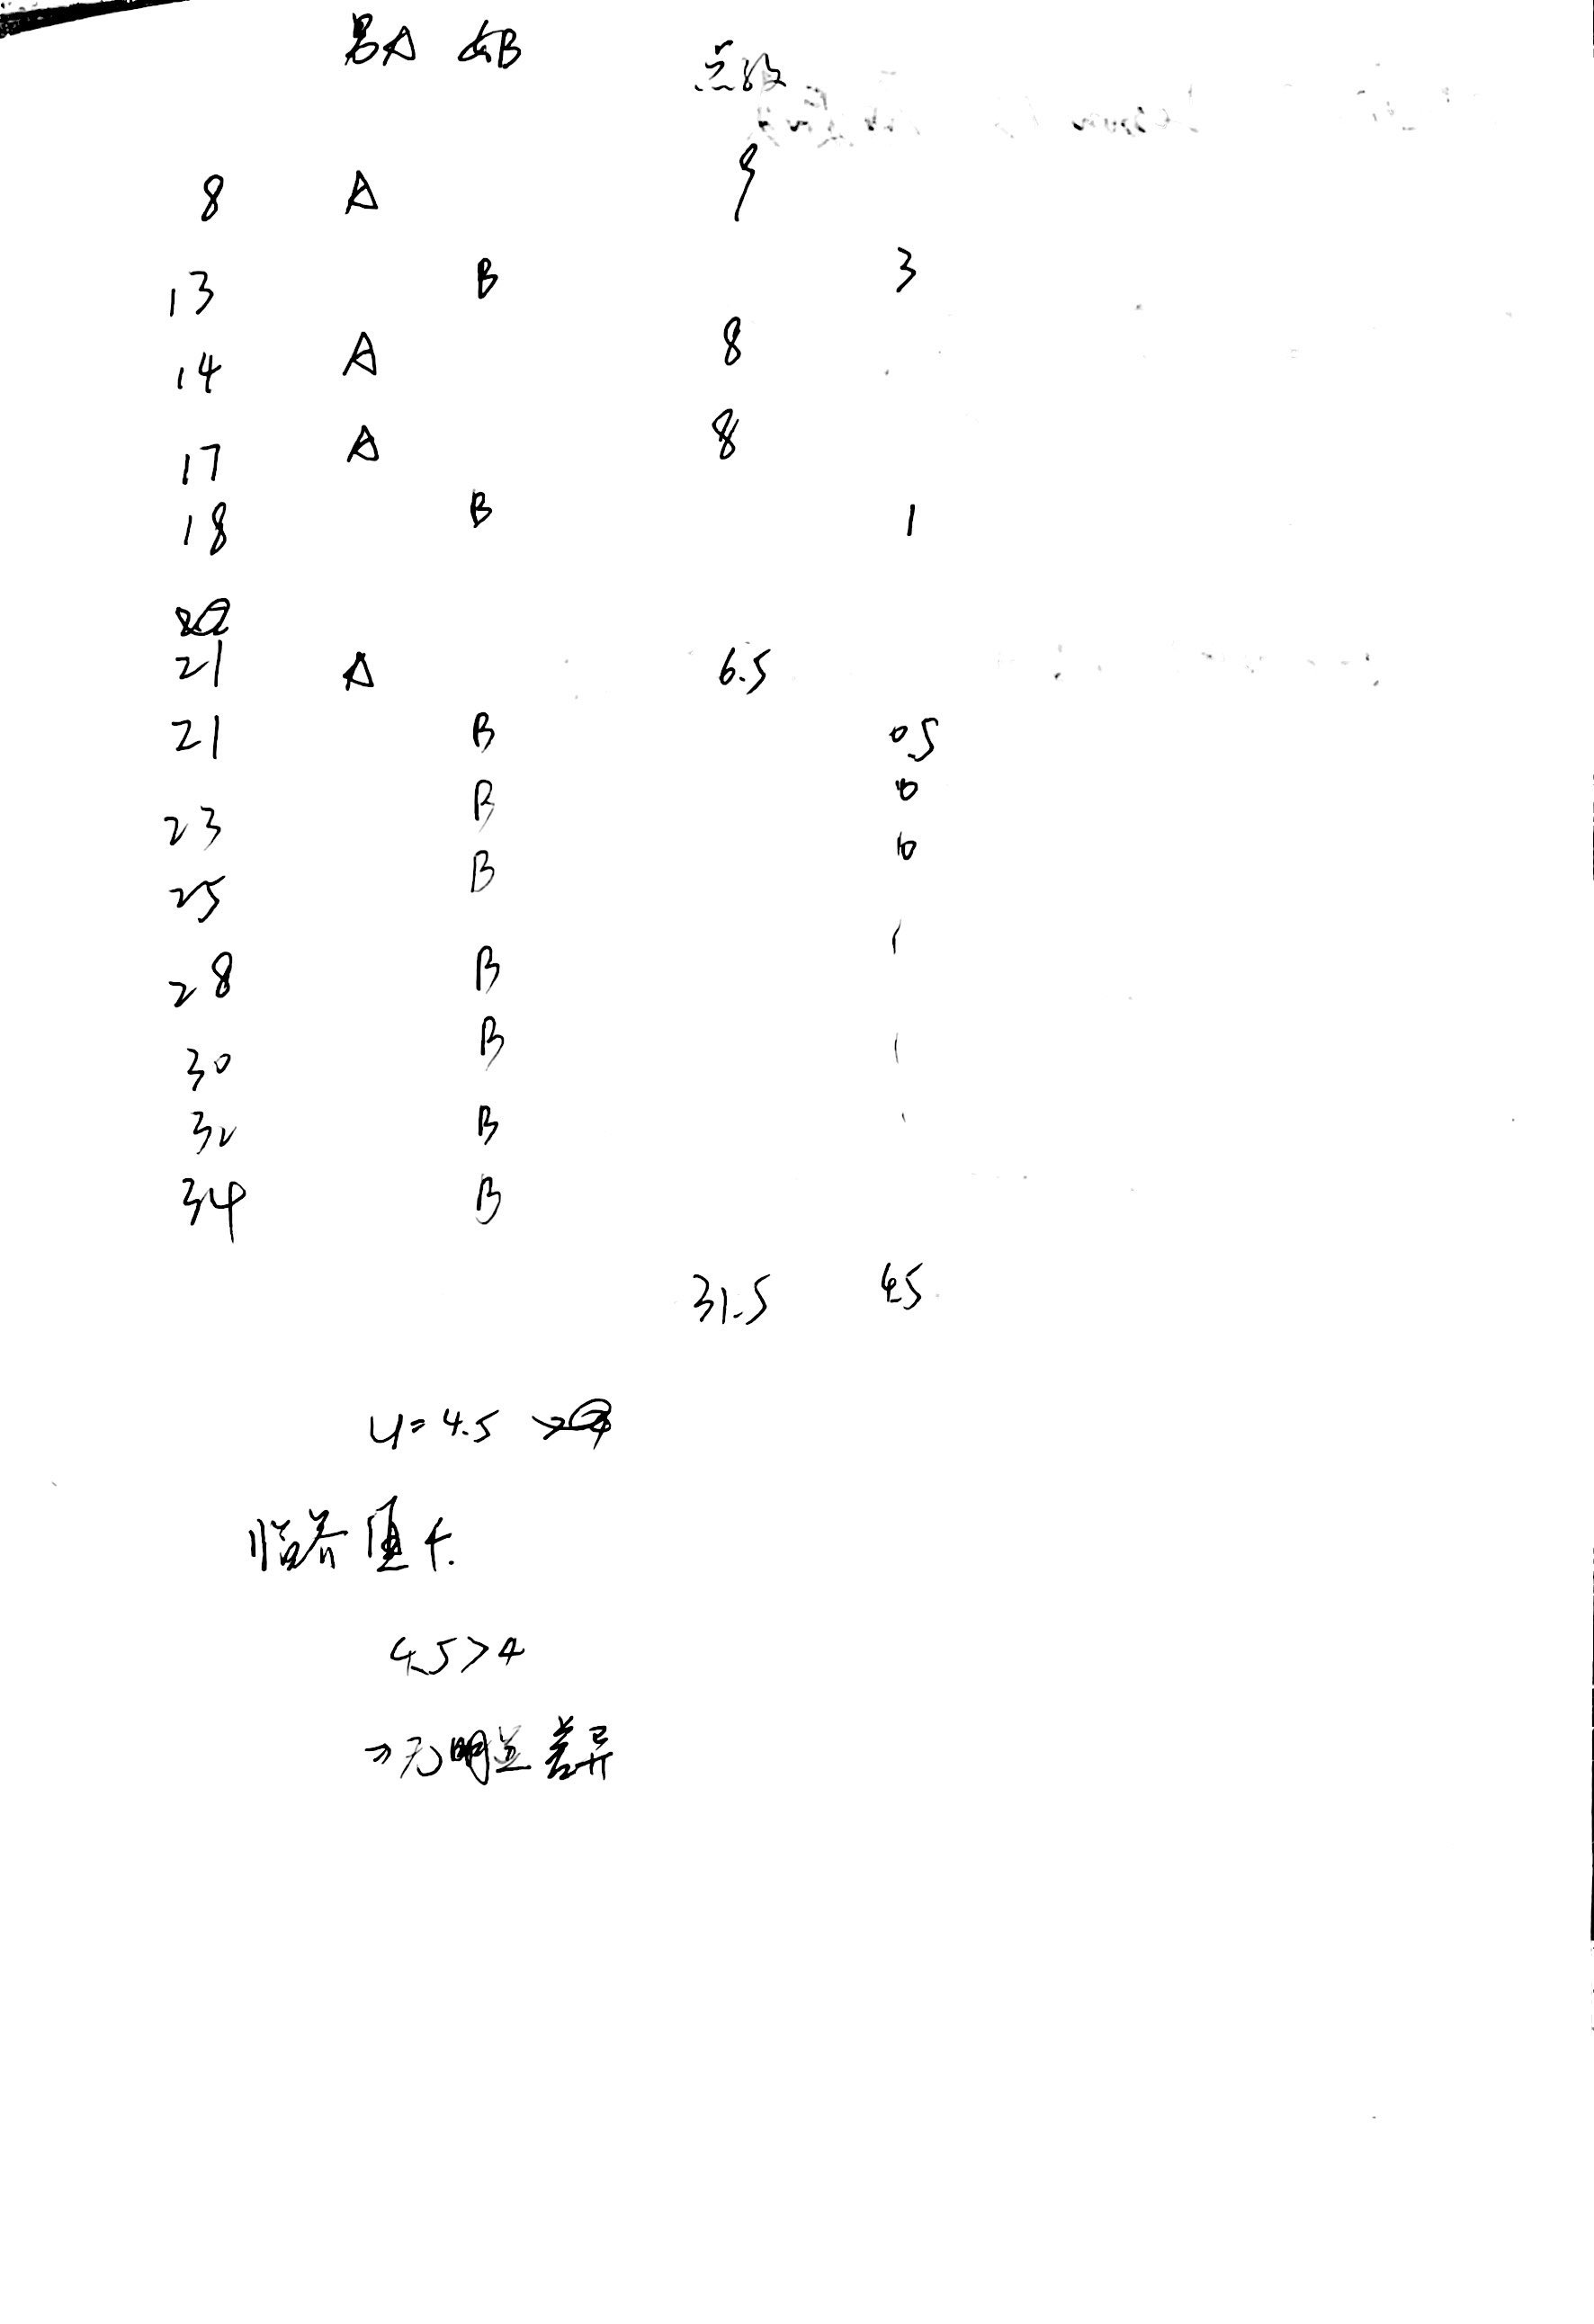 男A 女B 点数
8 A 9
13 B 3
14 A 8
17 A 8
18 B 1
21 A 6.5
21 B 0.5
23 B 0
25 B 0
28 B
30 B
32 B
34 B
31.5 4.5
U=4.5
临界值4.
4.5>4
⇒无明显差异